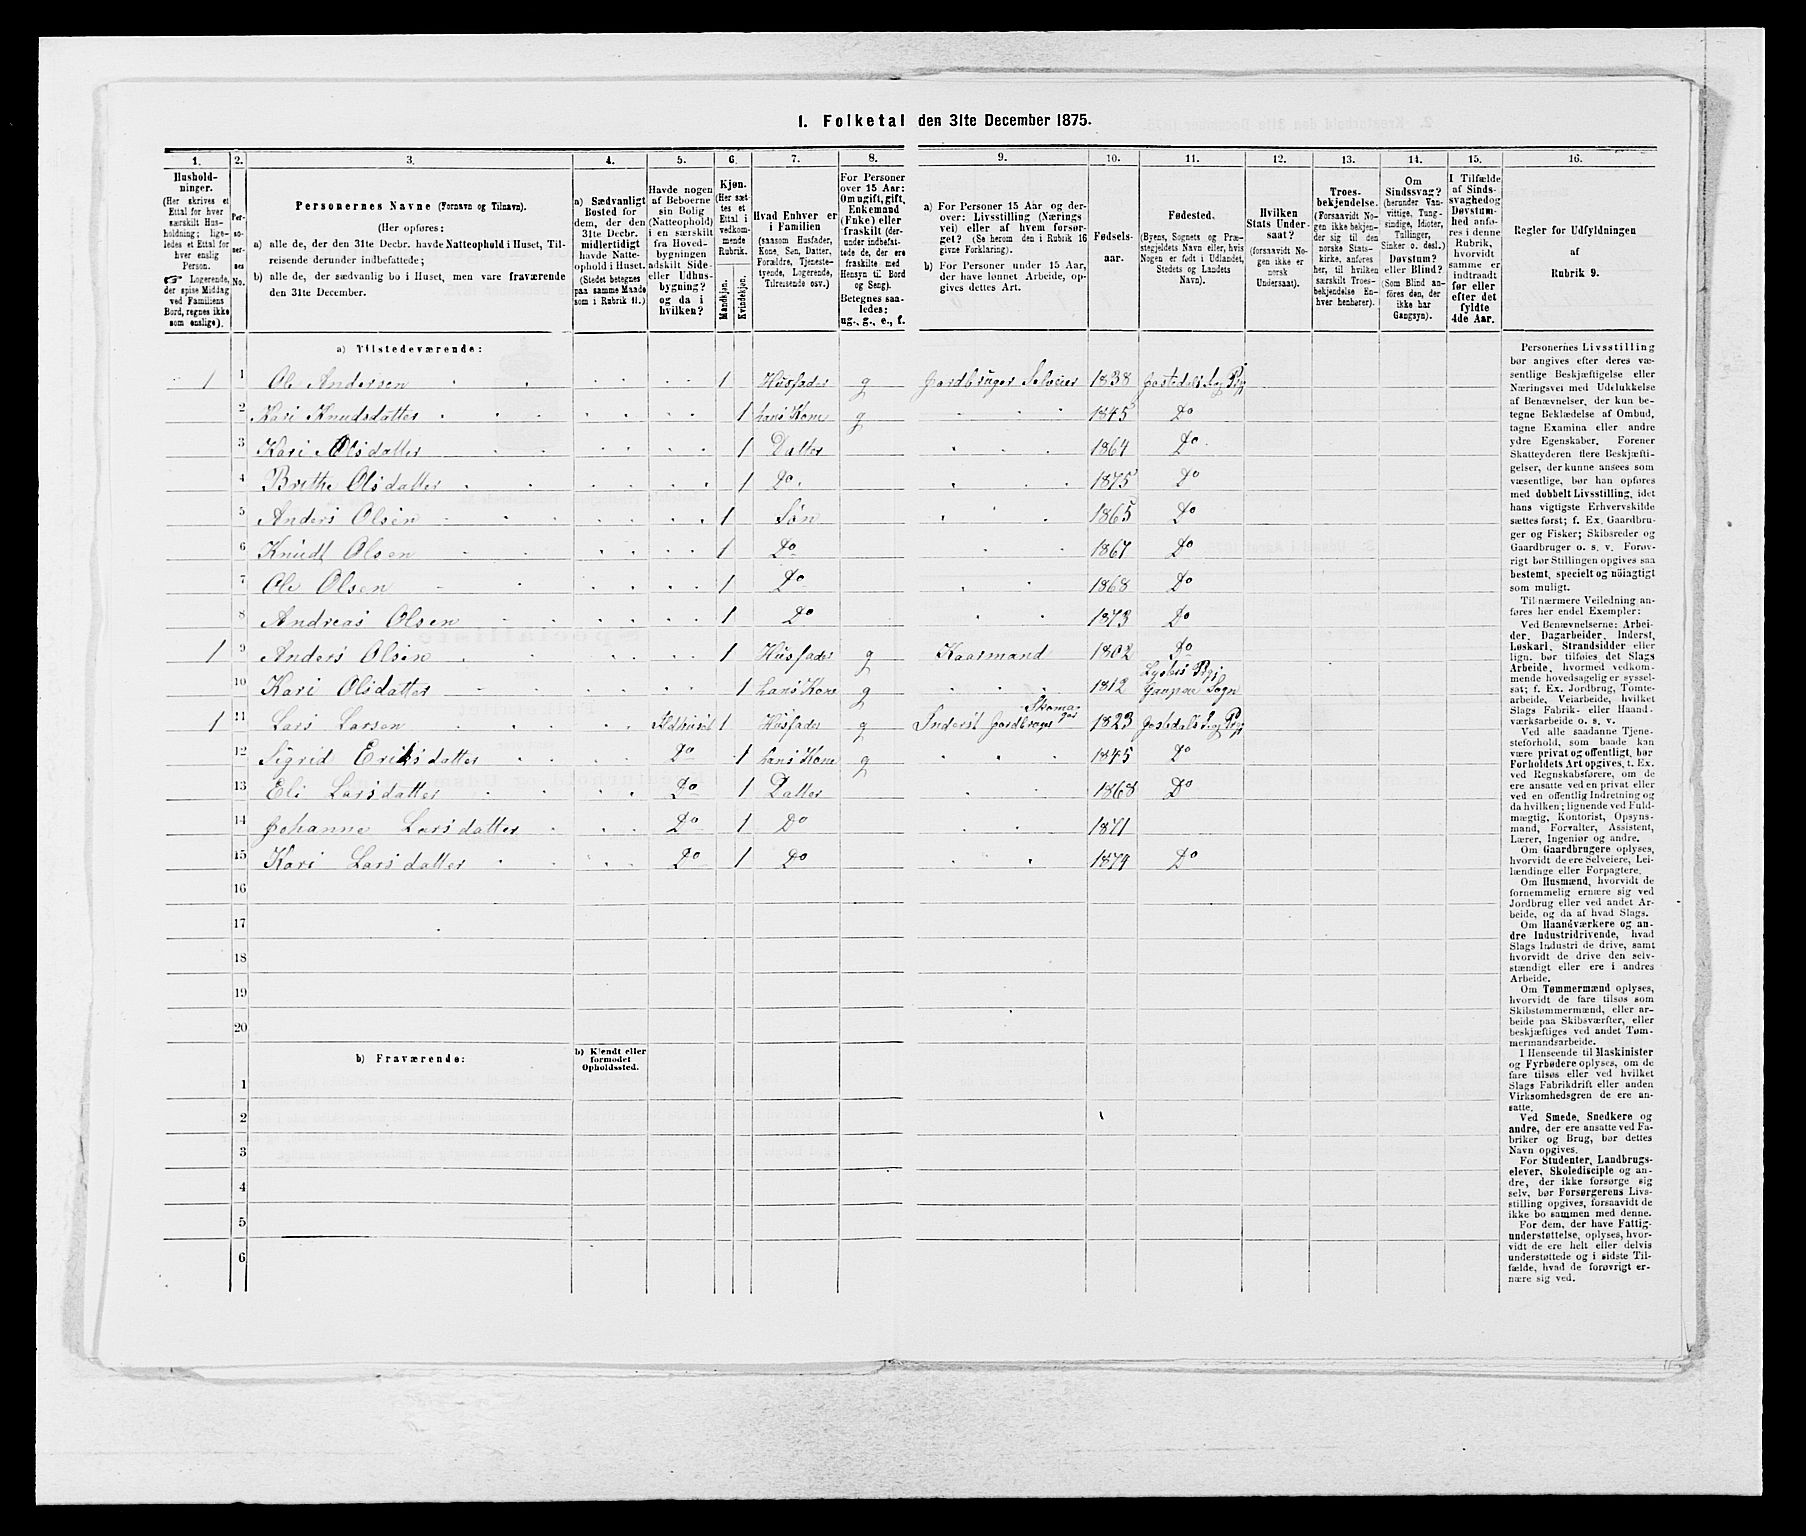 I. Folketal den 31te December 1875.
1. 2. 3. 4. 5. 6. 7. 8. 9. 10. 11. 12. 13. 14. 15. 16.
Hushold-
ninger.
(Her skrives et
Ettal for hver
særskilt Hus-
holdning; lige-
ledes et Ettal for
hver enslig
Person.
☞ Logerende,
der spise Middag
ved Familiens
Bord, regnes ikke
som enslige).
Per-
so-
ner-
nes
No.
Personernes Navne (Fornavn og Tilnavn).
(Her opføres:
a) alle de, der den 31te Decbr. havde Natteophold i Huset, Til-
reisende derunder indbefattede;
b) alle de, der sædvanlig bo i Huset, men vare fraværende
den 31te December.
a) Sædvanligt
Bosted for
dem, der den
31te Decbr.
midlertidigt
havde Natte-
ophold i Huset.
(Stedet betegnes
paa samme Maade
som i Rubrik 11.)
Havde nogen
af Beboerne
sin Bolig
(Natteophold)
i en særskilt
fra Hoved-
bygningen
adskilt Side-
eller Udhus-
bygning?
og da i
hvilken?
Kjøn.
(Her sæt-
tes et
Ettal i
vedkom-
mende
Rubrik.
Mandkjøn.
Kvindekjøn.
Hvad Enhver er
i Familien
(saasom Husfader,
Kone, Søn, Datter,
Forældre, Tjeneste-
tyende, Logerende,
Tilreisende osv.)
For Personer
over 15 Aar:
Om ugift, gift,
Enkemand
(Enke) eller
fraskilt (der-
under indbefat-
tede de, der ere
fraskilte med
Hensyn til Bord
og Seng).
Betegnes saa-
ledes:
ug., g., e., f.
a) For Personer 15 Aar og der-
over: Livsstilling (Nærings
vei) eller af hvem forsør-
get? (Se herom den i Rubrik 16
givne Forklaring).
b) For Personer under 15 Aar,
der have lønnet Arbeide, op-
gives dettes Art.
Fødsels-
aar.
Fødested.
(Byens, Sognets og Præ-
stegjeldets Navn eller, hvis
Nogen er født i Udlandet,
Stedets og Landets
Navn).
Hvilken
Stats Under-
saat?
(forsaavidt No-
gen ikke er
norsk
Undersaat).
Troes-
bekjendelse.
(Forsaavidt No-
gen ikke bekjen-
der sig til den
norske Stats-
kirke, anføres
her, til hvilken
særskilt Troes-
bekjendelse En-
hver henhører).
Om
Sindssvag?
(herunder Van-
vittige, Tung-
sindige, Idioter,
Tullinger,
Sinker o. desl.)
Døvstum?
eller Blind?
(Som Blind an-
føres den, der
ikke har
Gangsyn).
I Tilfælde
af Sinds-
svaghed og
Døvstum-
hed anfø-
res i denne
Rubrik,
hvorvidt
samme er
indtraadt
før eller
efter det
fyldte
4de Aar.
Regler for Udfyldningen
af
Rubrik 9.
a) Tilstedeværende:
1 1 Ole Andersen 1 Husfader g Gardbruger Selveier 1838 Jostedals Sog Prg
2 Kari Knudsdatter 1 hans Kone g 1845 Do
3 Kari Olsdatter 1 Datter 1864 Do
4 Brithe Olsdatter 1 Do 1875 Do
5 Anders Olsen 1 Søn 1865 Do
6 Knudt Olsen 1 Do 1867 Do
7 Ole Olsen 1 Do 1868 Do
8 Andreas Olsen 1 Do 1873 Do
1 9 Anders Olsen 1 Husfader g Kaarmand 1802 Do
10 Kari Olsdatter 1 hans Kone g 1812 Lysters Prgj Gaupne Sogn
1 11 Lars Larsen Ildhuset 1 Husfader g Inderst Gardbruger Skomager 1823 Jostedals Sog Prg
12 Sigrid Eriksdatter Do 1 hans Kone g 1845 Do
13 Eli Larsdatter Do 1 Datter 1868 Do
14 Johanne Larsdatter Do 1 Do 1871
15 Kari Larsdatter Do 1 Do 1874 Do
16
17
18
19
20
b) Fraværende:
b) Kjendt eller
formodet
Opholdssted.
1
2
3
4
5
6
Personernes Livsstilling
bør angives efter deres væ-
sentlige Beskjæftigelse eller
Næringsvei med Udelukkelse
af Benævnelser, der kun be-
tegne Beklædelse af Ombud,
tagne Examina eller andre
ydre Egenskaber. Forener
Skatteyderen flere Beskjæfti-
gelser, der kunne ansees som
væsentlige, bør han opføres
med dobbelt Livsstilling, idet
hans vigtigste Erhvervskilde
sættes først; f. Ex. Gaardbru-
ger og Fisker; Skibsreder og
Gaardbruger o. s. v. Forøv-
rigt bør Stillingen opgives saa
bestemt, specielt og nöiagtigt
som muligt.
Til nærmere Veiledning an-
føres her endel Exempler:
Ved Benævnelserne: Arbei-
der, Dagarbeider, Inderst,
Løskarl, Strandsidder eller
lign. bør tilføies det Slags
Arbeide, hvormed vedkom-
mende hovedsagelig er syssel-
sat; f. Ex. Jordbrug, Tomte-
arbeide, Veiarbeide, hvilket
Slags Fabrik- eller Haand-
værksarbeide o. s. v.
Ved alle saadanne Tjene-
steforhold, som baade kan
være privat og offentligt, bør
Forholdets Art opgives, t. Ex.
ved Regnskabsførere, om de
ere ansatte ved en privat eller
ved en offentlig Indretning og
da hvilken; lignende ved Fuld-
mægtig, Kontorist, Opsyns-
mand, Forvalter, Assistent,
Lærer, Ingeniør og andre.
Om Gaardbrugere oplyses,
hvorvidt de ere Selveiere, Lei-
lændinge eller Forpagtere.
Om Husmænd, hvorvidt de
fornemmelig ernære sig ved
Jordbrug eller ved andet Ar-
beide, og da af hvad Slags.
Om Haandværkere og an-
dre Industridrivende, hvad
Slags Industri de drive, samt
hvorvidt de drive den selv-
stændigt eller ere i andres
Arbeide.
Om Tømmermænd oplyses,
hvorvidt de fare tilsøs som
Skibstømmermænd, eller ar-
beide paa Skibsværfter, eller
beskjæftiges ved andet Tøm-
mermandsarbeide.
I Henseende til Maskinister
og Fyrbødere oplyses, om de
fare tilsøs eller ved hvilket
Slags Fabrikdrift eller anden
Virksomhedsgren de ere an-
satte.
Ved Smede, Snedkere og
andre, der ere ansatte ved Fa-
briker og Brug, bør dettes
Navn opgives.
For Studenter, Landbrugs-
elever, Skoledisciple og an-
dre, der ikke forsørge sig
selv, bør Forsørgerens Livs-
stilling opgives, forsaavidt de
ikke bo sammen med denne.
For dem, der have Fattig-
understøttelse, oplyses, hvor-
vidt de ere helt eller delvis
understøttede og i sidste Til-
fælde, hvad de forøvrigt er-
nære sig ved.